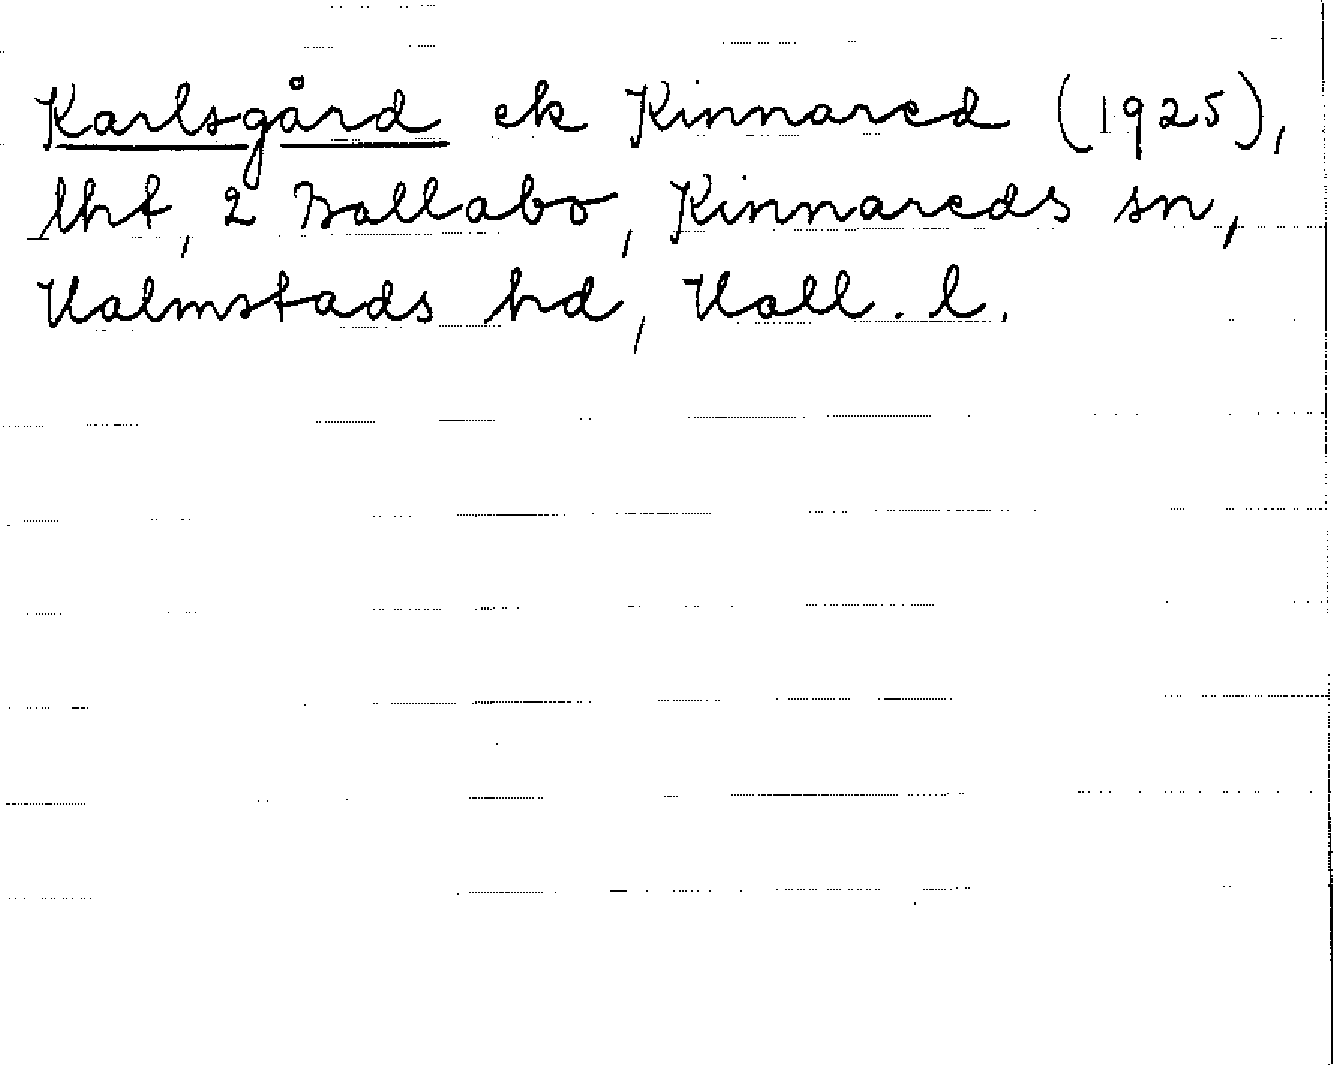 Karlsgård ek Kinnared (1925),
lht, 2 Ballabo, Kinnareds sn,
Halmstads hd, Hall. l.